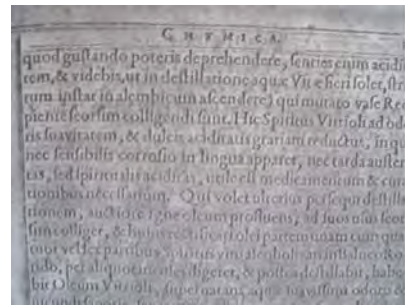 CHYMICA.
quod gustando poteris deprehendere, senties enim acidi
tem, & videbis, ut in destillatione aquæ Vitæ fieri solet, stri
rum instar in alembicum ascendere) qui mutato vase Re
piente seorsim colligendi sunt. Hic Spiritus Vitrioli ad od
ris suavitatem, & dulcis aciditatis gratiam reductus, in qu
nec sensibilis corrosio in lingua apparet, nec tarda auster
tas, sed spiritualis aciditas, utile est medicamentum & cura
tionibus necessarium. Qui volet ulterius persequi destilla
tionem, auctiore igne oleum profluens, ad suos usus seor
sim colliget, & huius rectificati olei partem unam cum qua
tuor vel sex partibus Spiritus vini alcoholisati
ndo, per aliquot menses digeret, & postea destillabit, habe
bit Oleum Vitrioli, supernatans aquæ suavissimi odoris